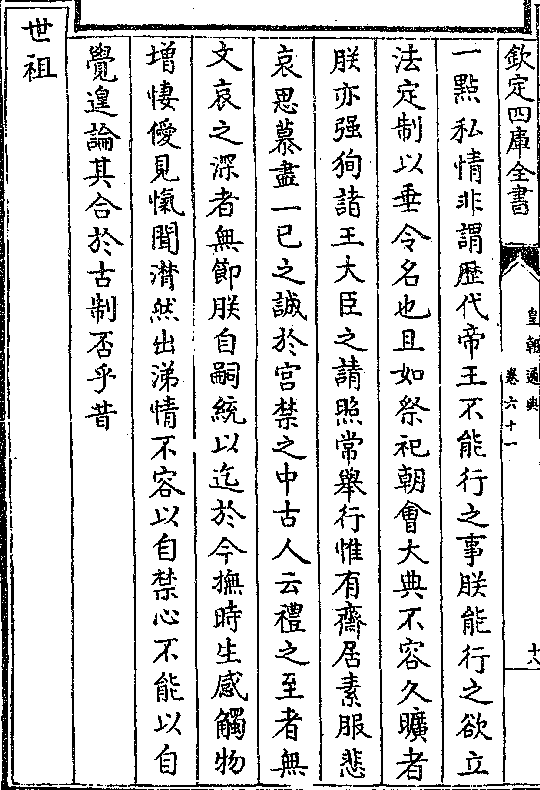 欽定四庫全書
皇朝通典
卷六十一
十八
一點私情非謂歷代帝王不能行之事朕能行之欲立
法定制以垂令名也且如祭祀朝會大典不容久曠者
朕亦强狥諸王大臣之請照常舉行惟有齋居素服悲
哀思慕盡一已之誠於宫禁之中古人云禮之至者無
文哀之深者無節朕自嗣統以迄於今撫時生感觸物
增悽僾見愾聞潸然出涕情不容以自禁心不能以自
覺遑論其合於古制否乎昔
世祖